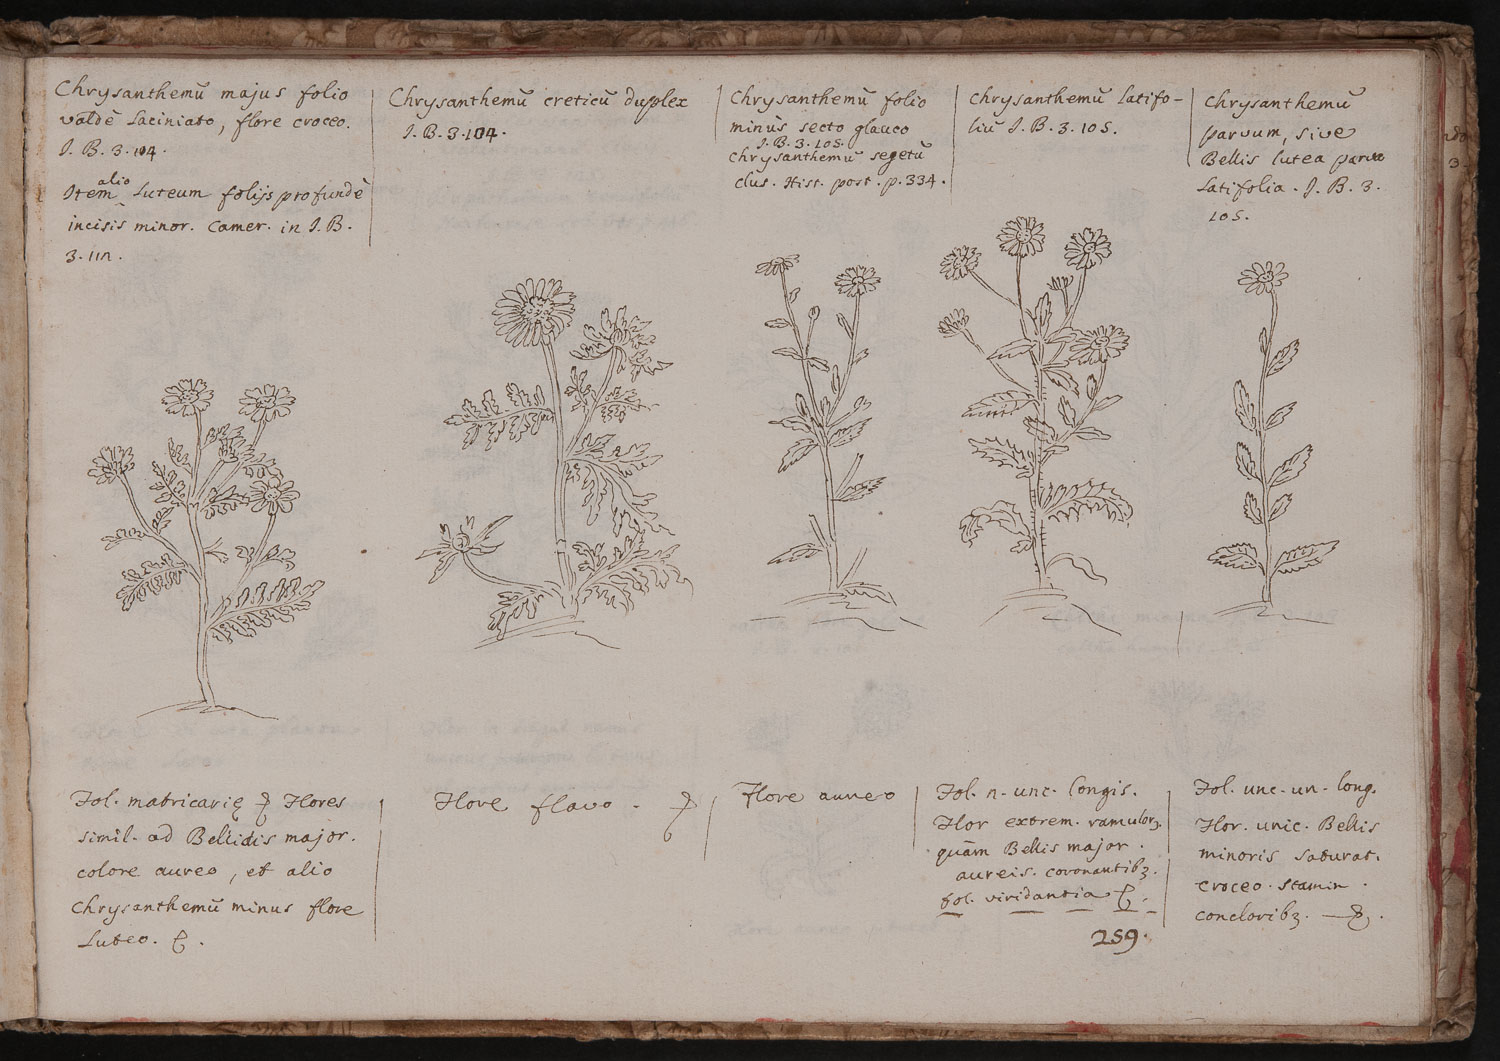 Chrysanthemū majus folio
valdè laciniato, flore croceo.
J. B. 3. 104.
alio
Item Luteum folijs profundè
incisis minor. Camer. in J. B.
3.
Chrysanthemū creticū duplex
J. B. 3. 104.
Chrysanthemū folio
minùs secto glauco
J. B. 3. 105.
Chrysanthemū segetū
Clus. Hist. post. p. 334.
Chrysanthemū latifo-
liū J. B. 3. 105.
Chrysanthemū
parvum, sive
Bellis lutea parva
latifolia. J. B. 3.
105.
Fol. matricarię Flores
simil. ad Bellidis major.
colore aureo, et alio
Chrysanthemū minus flore
Luteo.
Flore flavo.
Flore aureo
Fol. n. unc. longis.
Flor extrem. ramulorꝫ
quàm Bellis major.
aureis. coronantibꝫ.
fol. viridantia
259.
Fol. unc. un. long.
Flor. unic. Bellis
minoris saturat.
croceo. stamin.
concloribꝫ.